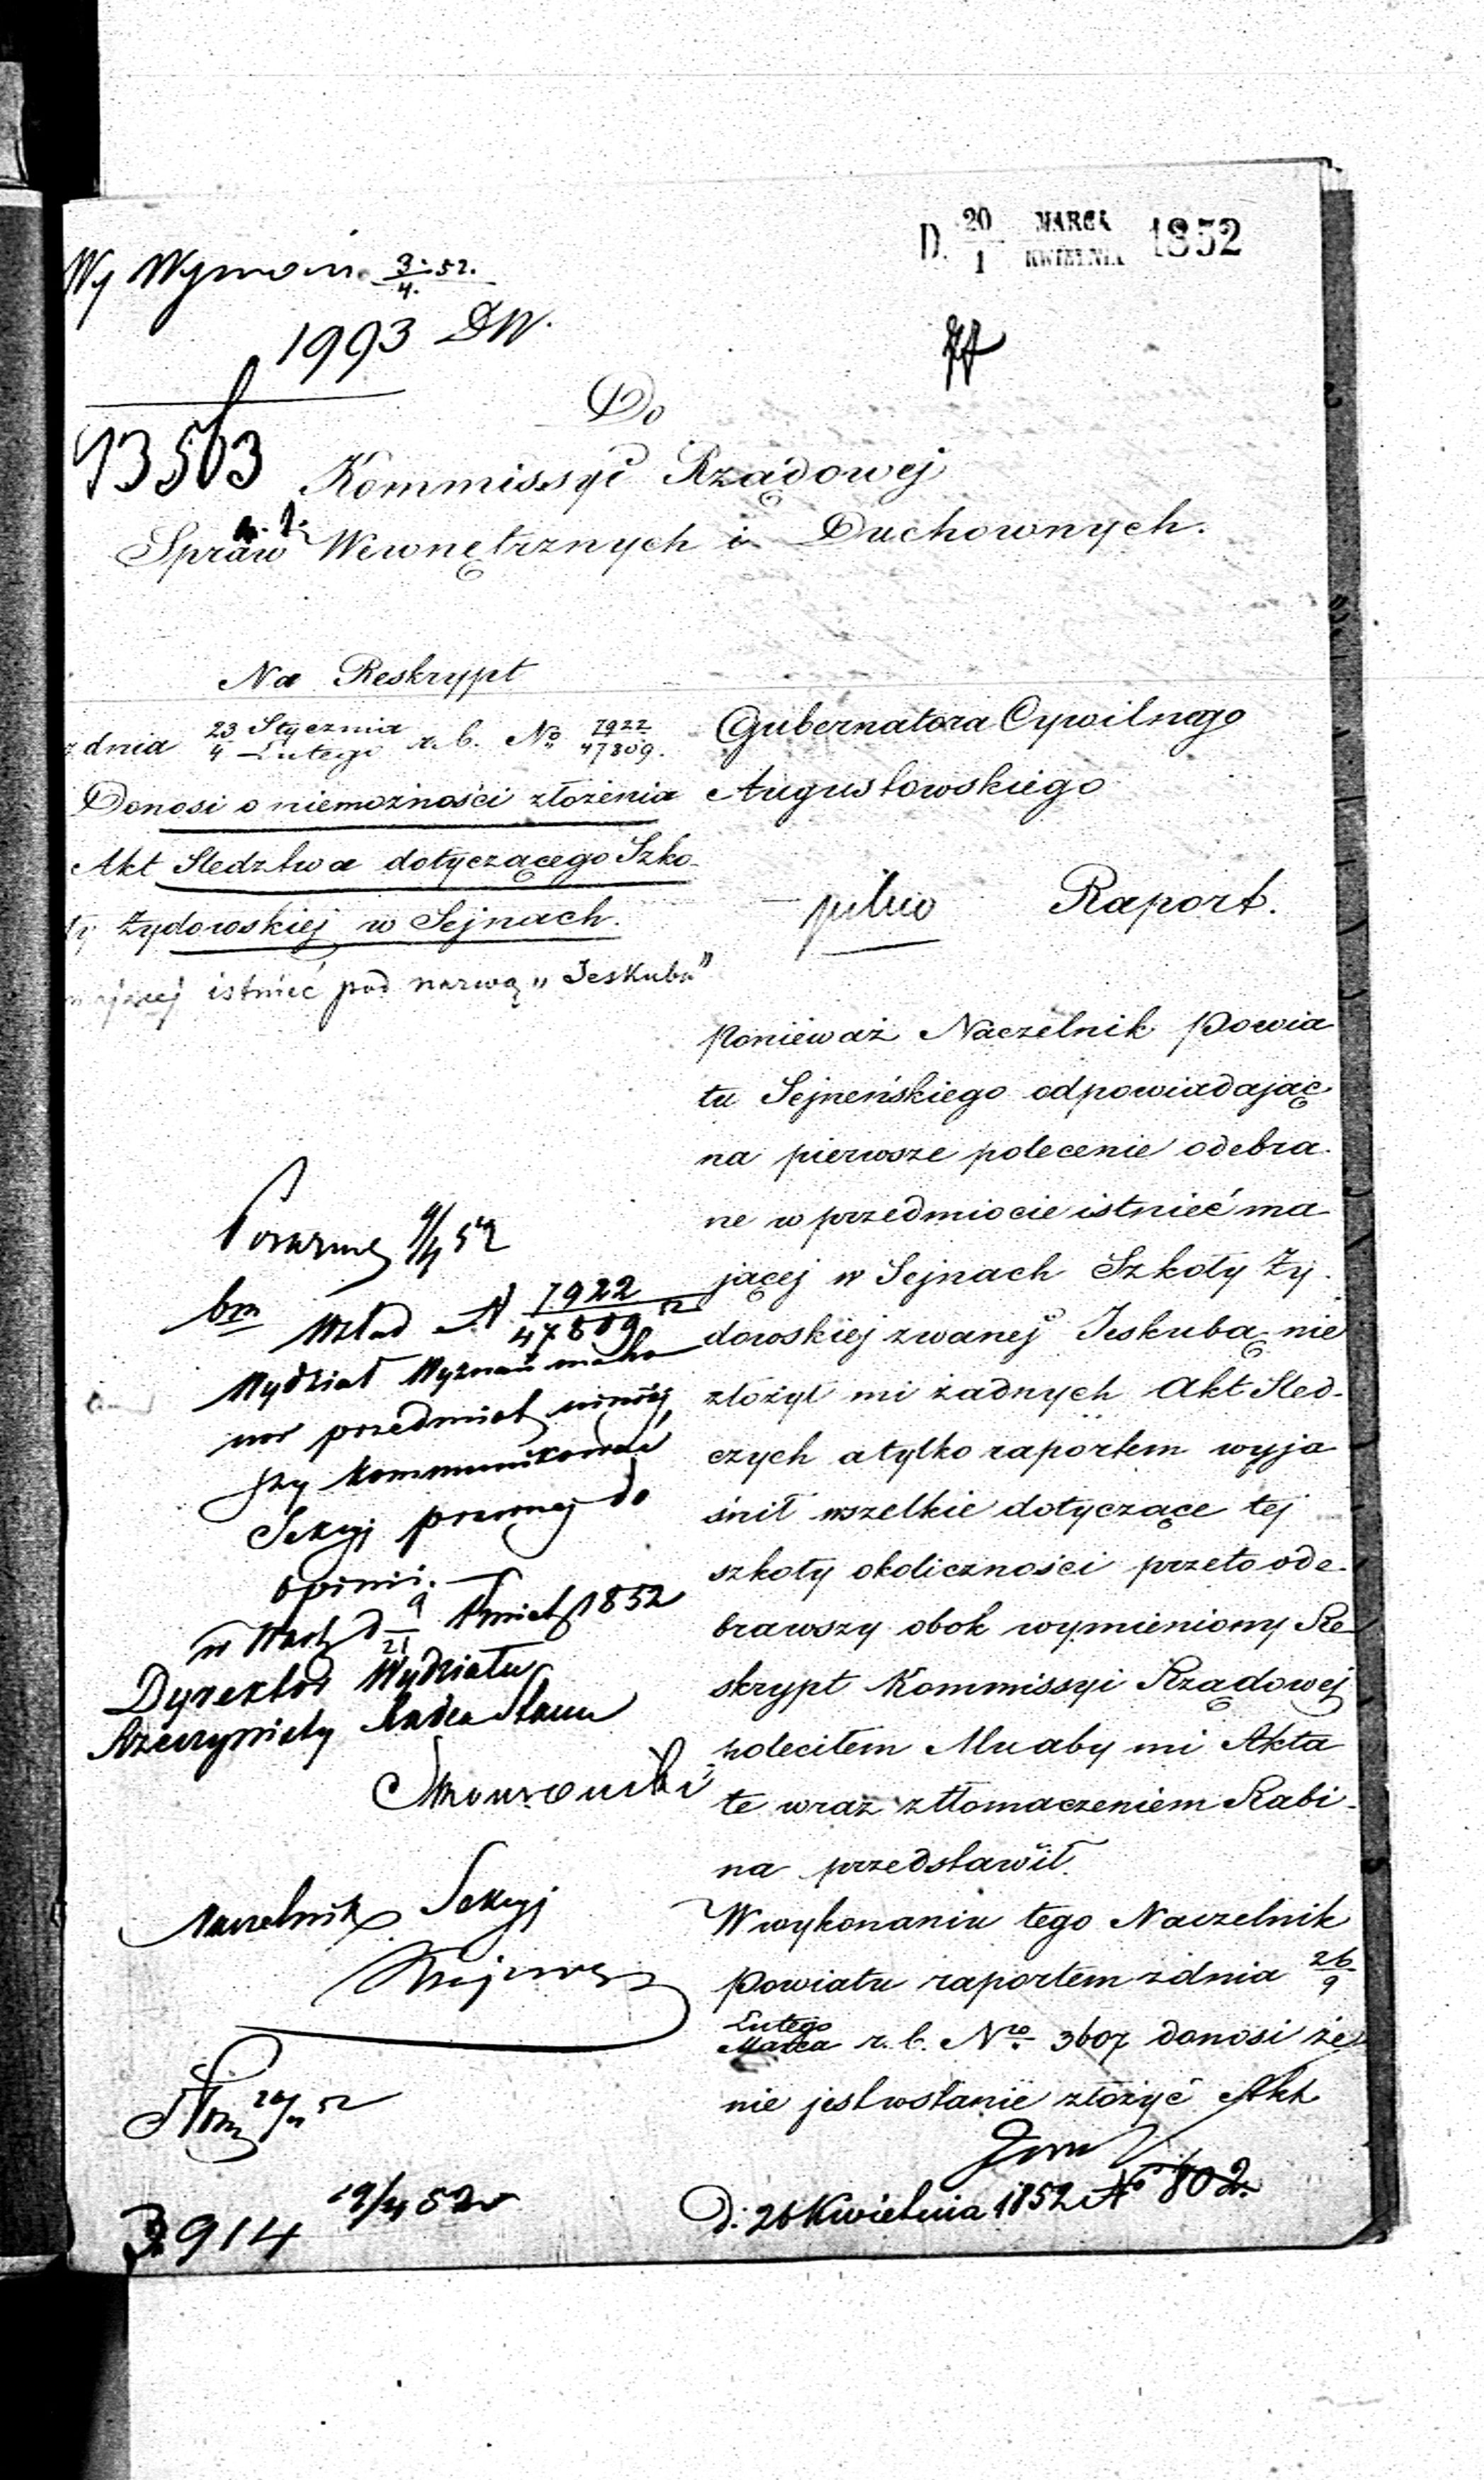 D. 20/1 MARCA KWIETNIA 1852
Wy Wyznań. 3/4.52.
1993 DW.
13563
Do
Kommissyi Rządowej
Spraw Wewnętrznych i Duchownych.
Na Reskrypt
z dnia 23 Stycznia / 4 Lutego r. b. No 7922/47809.
Donosi o niemożności złożenia
Akt Sledztwa dotyczącego Szko-
ły Żydowskiej w Sejnach.
mającej istnieć pod nazwą „Ieskuba"
Gubernatora Cywilnego
Augustowskiego
pilno Raport.
Ponieważ Naczelnik Powia
tu Sejneńskiego odpowiadając
na pierwsze polecenie odebra-
ne w przedmiocie istnieć ma
jącej w Sejnach Szkoły Ży-
dowskiej zwanej Ieskubą nie
złożył mi żadnych Akt Sled-
czych a tylko raportem wyja
śnił wszelkie dotyczące tej
szkoły okoliczności przeto ode-
brawszy obok wymieniony Re-
skrypt Kommissyi Rządowej
poleciłem Mu aby mi Akta
te wraz z tłomaczeniem Rabi-
na przedstawił.
W wykonaniu tego Naczelnik
Powiatu raportem z dnia 26/9
Lutego/Marca r. b. Nro 3607 donosi że
nie jest wstanie złożyć Akt
N 7922/47809 52
Wydział Wyznań ma ho
nor przedmiot niniej
szy kommunikować
Sekcyi prawnej do
opinii.
w Warsz d 9/21 Kwiet 1852
Dyrektor Wydziału
Rzeczywisty Radca Stanu
Naczelnik Sekcyi
3914
19/4 52
D: 26 Kwietnia 1852 No 802.